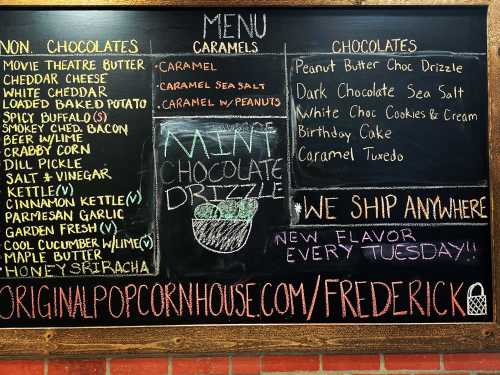 MENU
NON. CHOCOLATES
MOVIE THEATRE BUTTER
CHEDDAR CHEESE
WHITE CHEDDAR
LOADED BAKED POTATO
SPICY BUFFALO (S)
SMOKEY CHED. BACON
BEER W/LIME
CRABBY CORN
DILL PICKLE
SALT & VINEGAR
KETTLE (V)
CINNAMON KETTLE (V)
PARMESAN GARLIC
GARDEN FRESH (V)
COOL CUCUMBER W/LIME (V)
MAPLE BUTTER
HONEY SRIRACHA
CARAMELS
• CARAMEL
• CARAMEL SEA SALT
• CARAMEL W/PEANUTS
MINT
CHOCOLATE
DRIZZLE
CHOCOLATES
Peanut Butter Choc Drizzle
Dark Chocolate Sea Salt
White Choc Cookies & Cream
Birthday Cake
Caramel Tuxedo
*WE SHIP ANYWHERE
NEW FLAVOR
EVERY TUESDAY!!
ORIGINALPOPCORNHOUSE.COM/FREDERICK